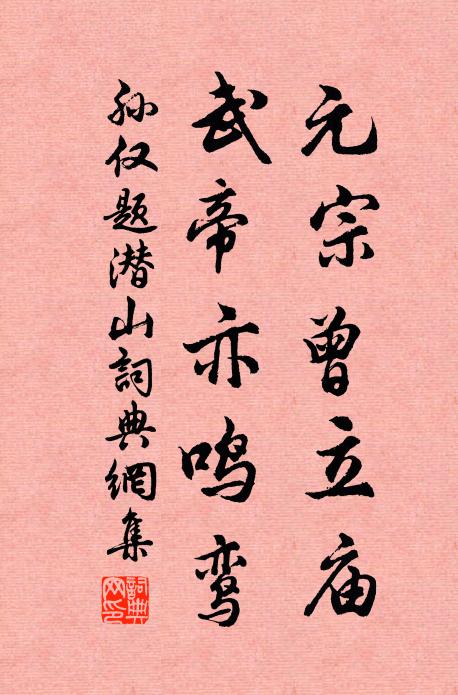 元宗曾立庙
武帝亦鸣鸾
孙仅题潜山詞典網集
詞典網印